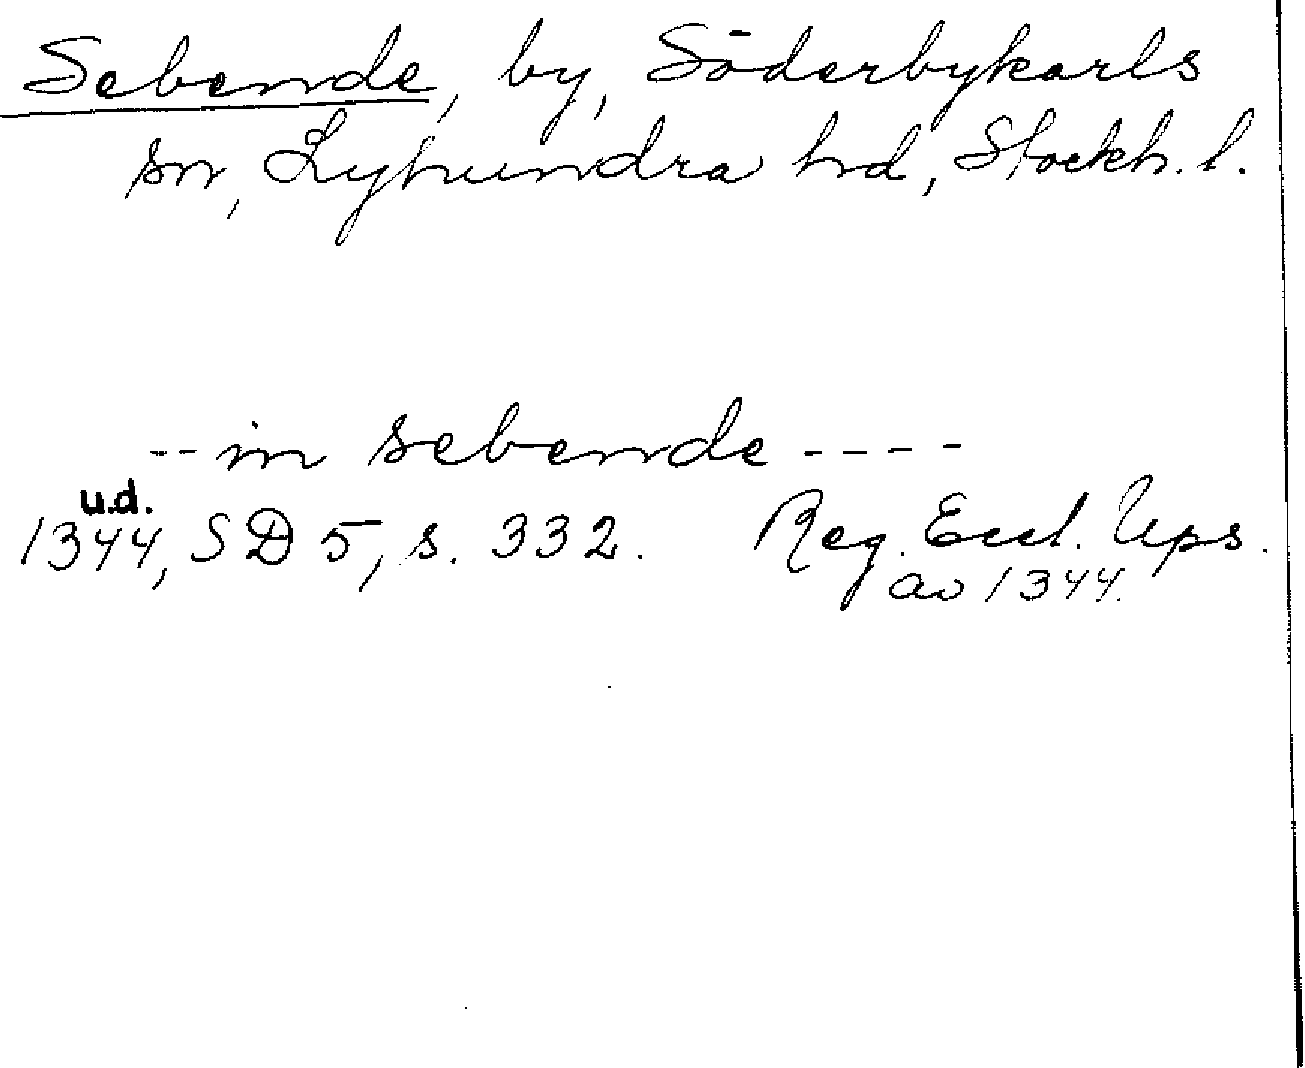 Sebende, by, Söderbykarls
sn, Lyhundra hd, Stockh. l.
-- in sebende ----
u.d.
1344, SD 5, s. 332. Reg. Eccl. Ups.
av 1344.